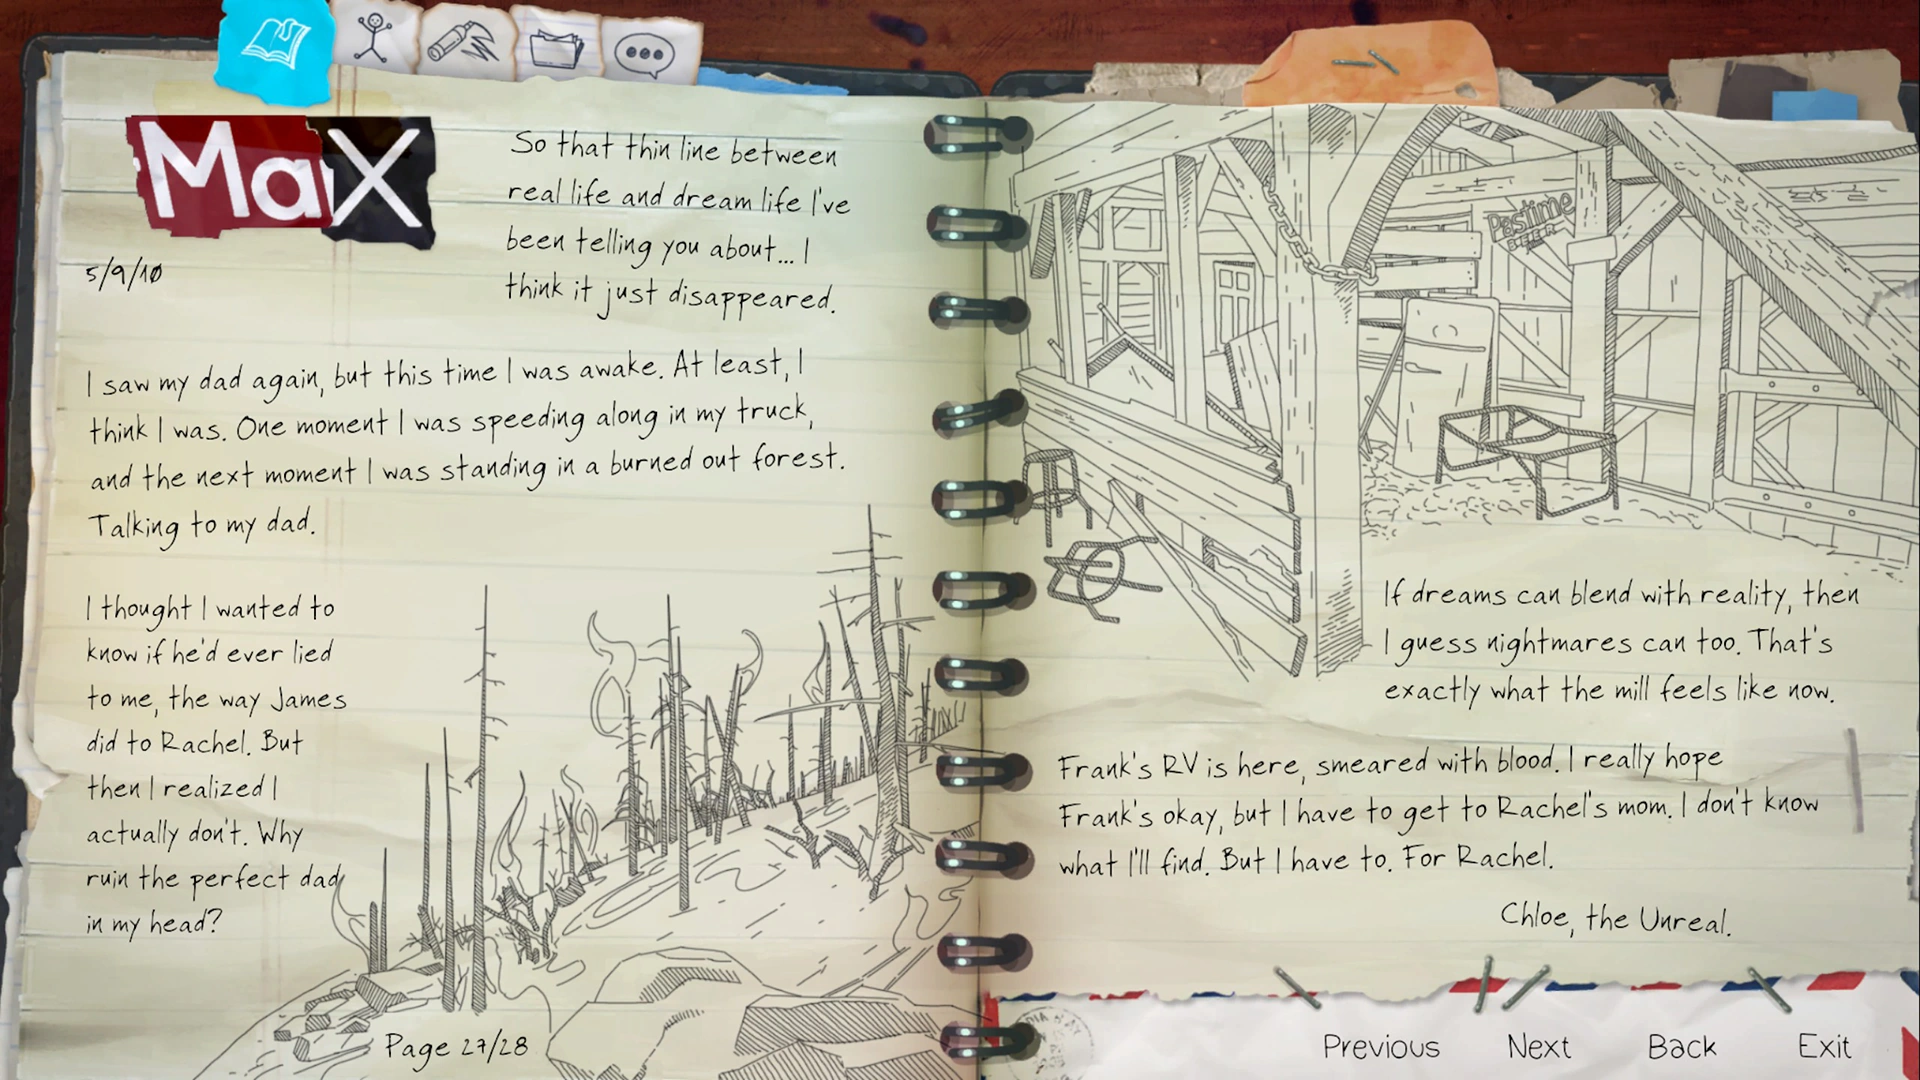 MaX
5/9/10
So that thin line between
real life and dream life I've
been telling you about... I
think it just disappeared.
I saw my dad again, but this time I was awake. At least, I
think I was. One moment I was speeding along in my truck,
and the next moment I was standing in a burned out forest.
Talking to my dad.
I thought I wanted to
know if he'd ever lied
to me, the way James
did to Rachel. But
then I realized I
actually don't. Why
ruin the perfect dad
in my head?
Page 27/28
Pastime
BEER
If dreams can blend with reality, then
I guess nightmares can too. That's
exactly what the mill feels like now.
Frank's RV is here, smeared with blood. I really hope
Frank's okay, but I have to get to Rachel's mom. I don't know
what I'll find. But I have to. For Rachel.
Chloe, the Unreal.
Previous Next Back Exit